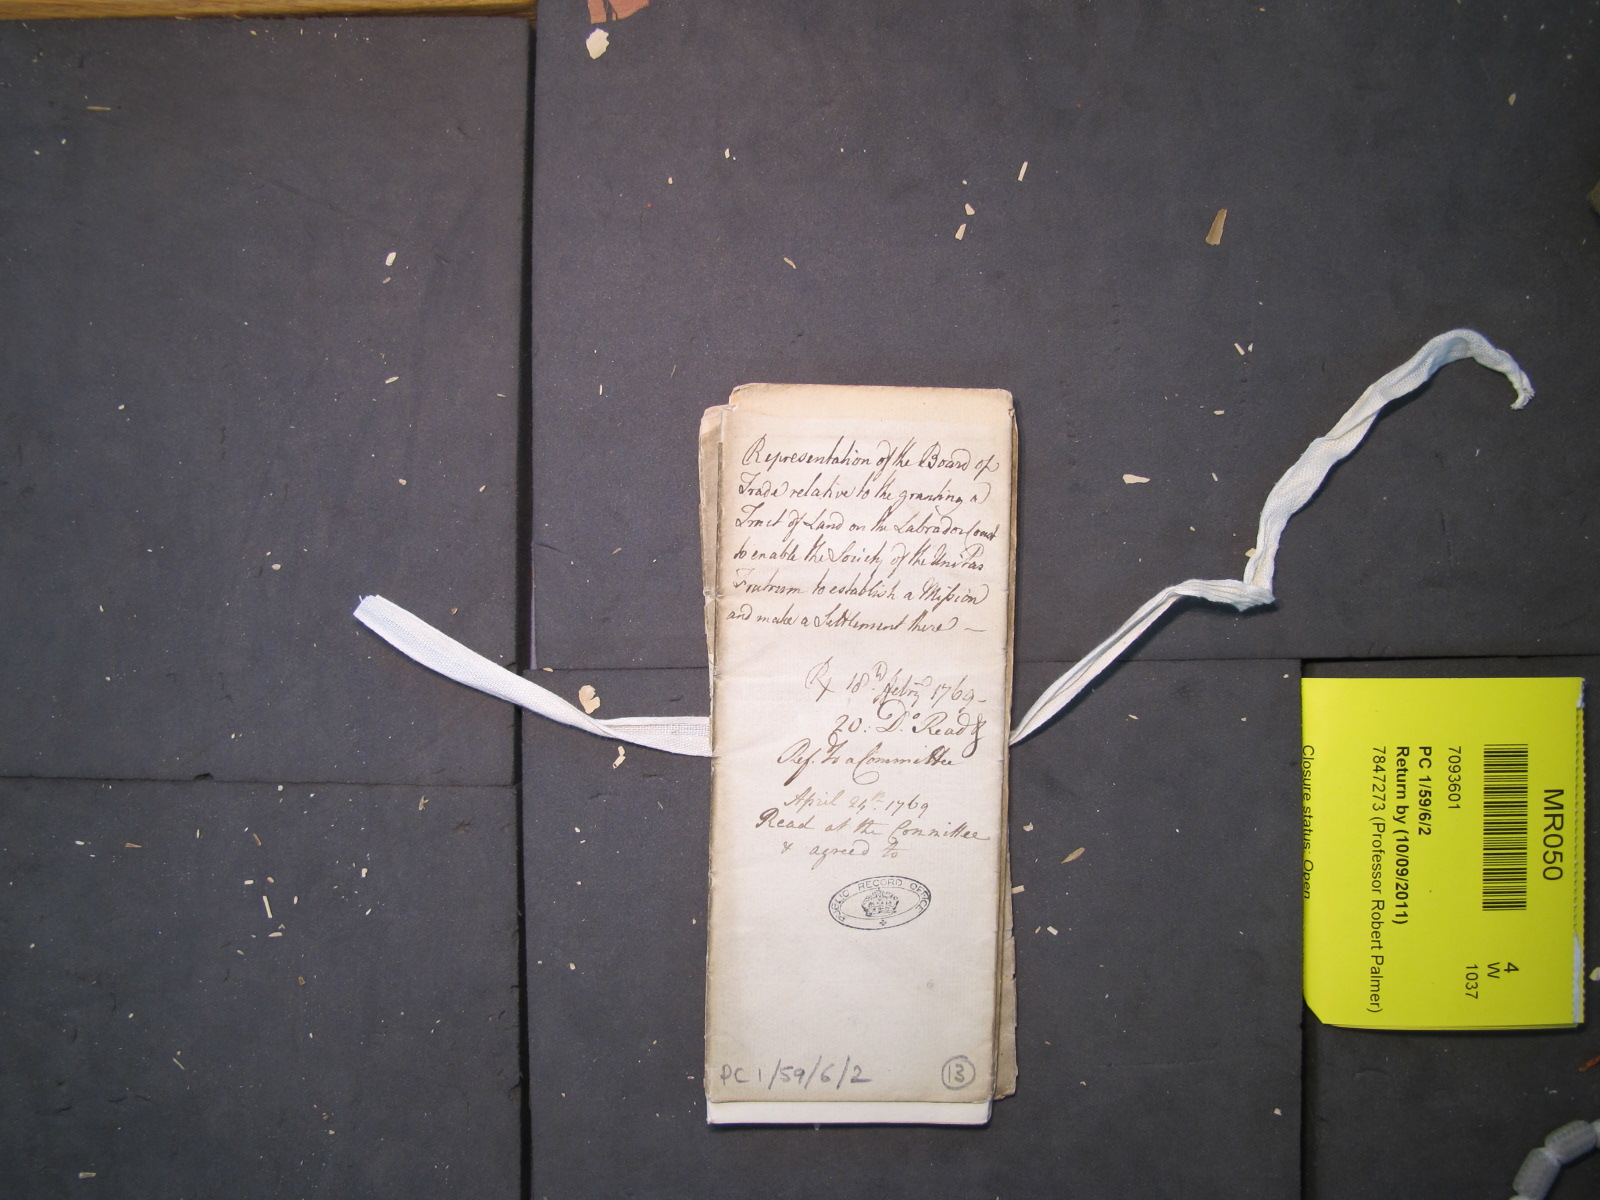 Representation of the Board of
Trade relative to the granting a
Tract of Land on the Labrador Coast
to enable the Society of the Unitas
Fratrum to establish a Mission
and make a Settlement there —
Rx 18.th Febry 1769 -
20: Do. Read &
Ref. to a Committee
April 24th. 1769
Read at the Committee
& agreed to
PUBLIC RECORD OFFICE
PC 1/59/6/2
13
MR050
4
W
1037
7093601
PC 1/59/6/2
Return by (10/09/2011)
7847273 (Professor Robert Palmer)
Closure status: Open